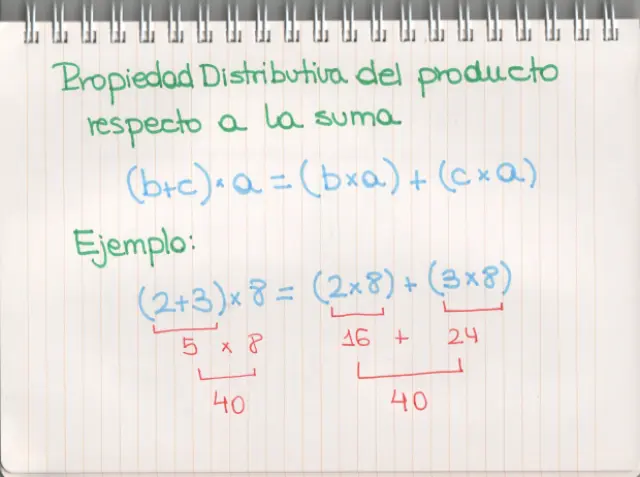 Propiedad Distributiva del producto
respecto a la suma
(b+c)×a = (b×a) + (c×a)
Ejemplo:
(2+3)×8 = (2×8) + (3×8)
5 × 8 16 + 24
40 40